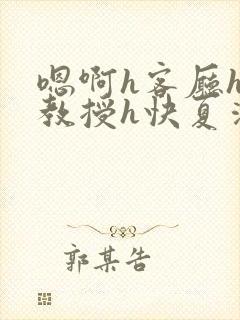 嗯啊h客厅h
教授h快夏
郭某告